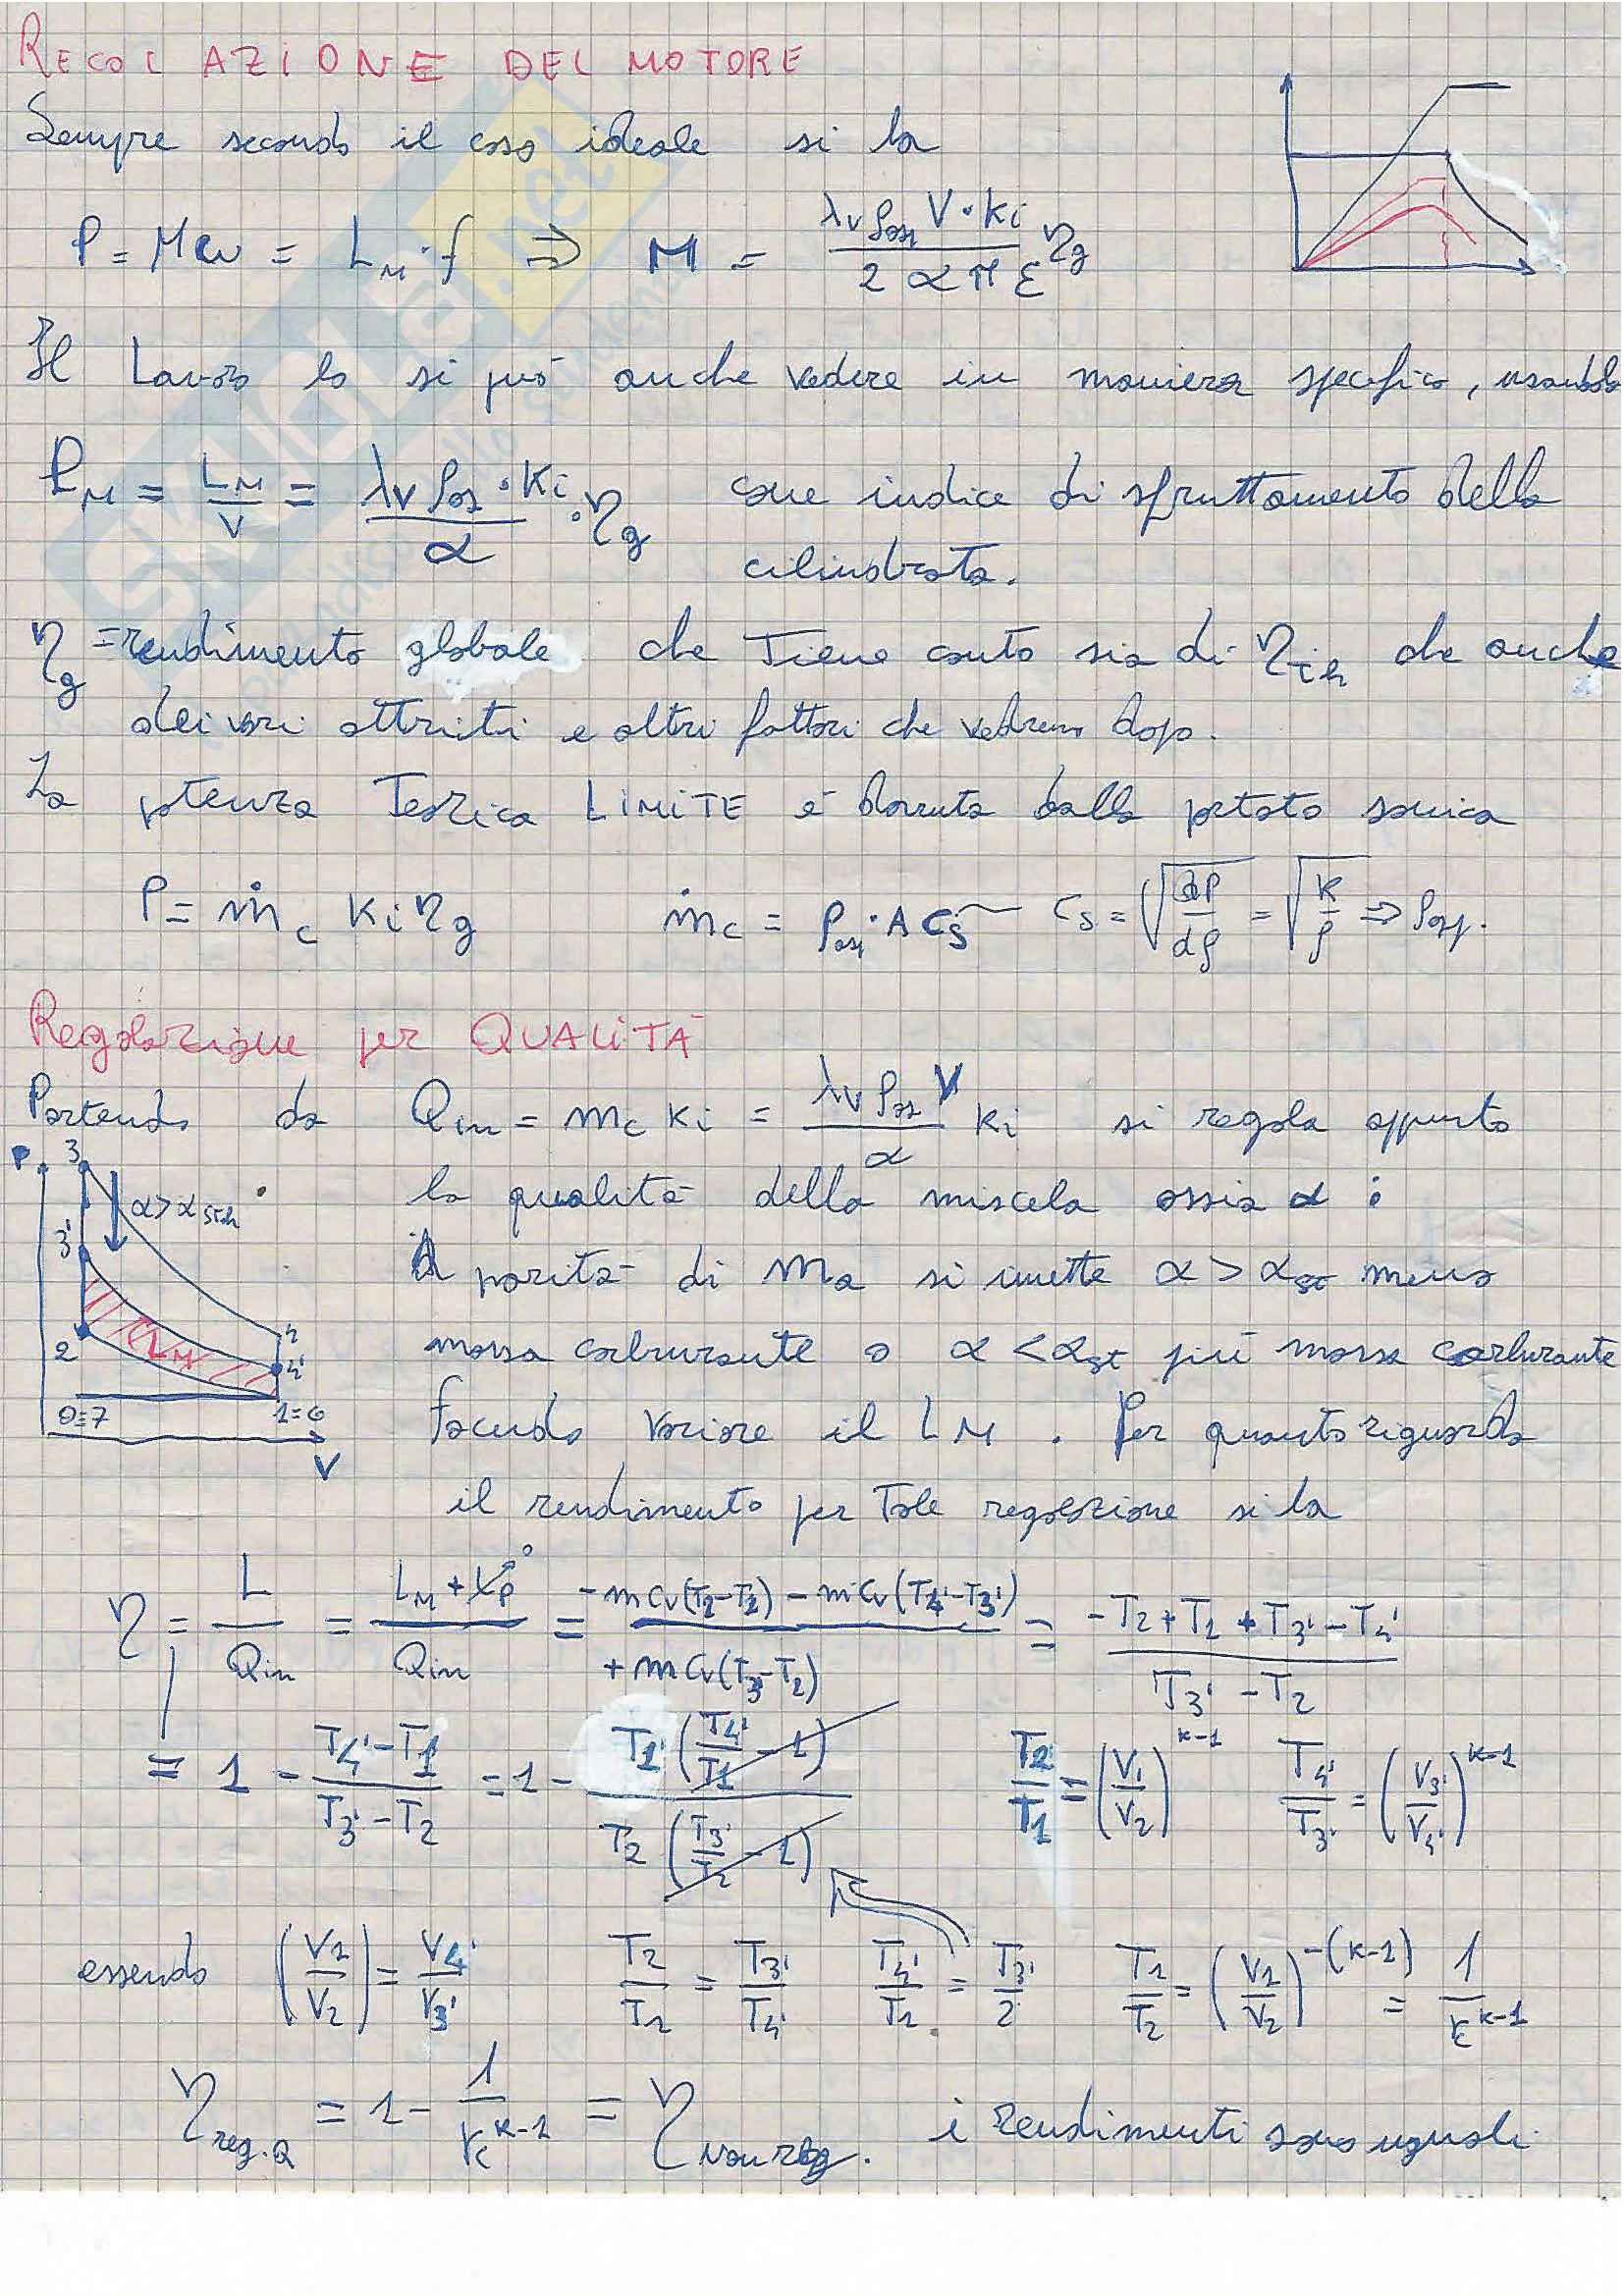 REGOLAZIONE DEL MOTORE
Sempre secondo il caso ideale si ha
P = Mω = L_M · f ⇒ M = (λ_v ρ_as V · Ki)/(2 α π ε) η_g
Il Lavoro lo si può anche vedere in maniera specifica, usandolo
P_M = L_M/V = (λ_v ρ_as · Ki)/α · η_g come indice di sfruttamento della
cilindrata.
η_g = rendimento globale che Tiene conto sia di η_th che anche
dei vari attriti e altri fattori che vedremo dopo.
La potenza Teorica LIMITE è dovuta dalla portata sonica
P = ṁ_c Ki η_g ṁ_c = ρ_as · A C_s C_s = √(dP/dρ) = √(K/ρ) ⇒ ρ_asp.
Regolazione per QUALITÀ
Partendo da Q_in = m_c Ki = (λ_v ρ_as V)/α Ki si regola appunto
la qualità della miscela ossia α :
A parità di m_a si mette α > α_st meno
massa carburante o α < α_st più massa carburante
facendo Variare il L_M . Per quanto riguarda
il rendimento per Tale regolazione si ha
P 3 α > α_stch
3'
2 L_M 4
4'
0=7 1=6
V
η = L/Q_in = (L_M + L_p⁰)/Q_in = (-m Cv(T2-T2) - m Cv(T4'-T3'))/(+m Cv(T3'-T2)) = (-T2 + T2 + T3' - T4')/(T3' - T2)
= 1 - (T4' - T1)/(T3' - T2) = 1 - T1(T4'/T1 - 1)/T2(T3'/T2 - 1) T2/T1 = (V1/V2)^(k-1) T4'/T3' = (V3'/V4')^(k-1)
essendo (V1/V2) = V4'/V3' T2/T1 = T3'/T4' T4'/T1 = T3'/2 T1/T2 = (V1/V2)^-(k-1) = 1/r_c^(k-1)
η_reg.Q = 1 - 1/r_c^(k-1) = η_Non reg. i rendimenti sono uguali.
SKUOLA.net